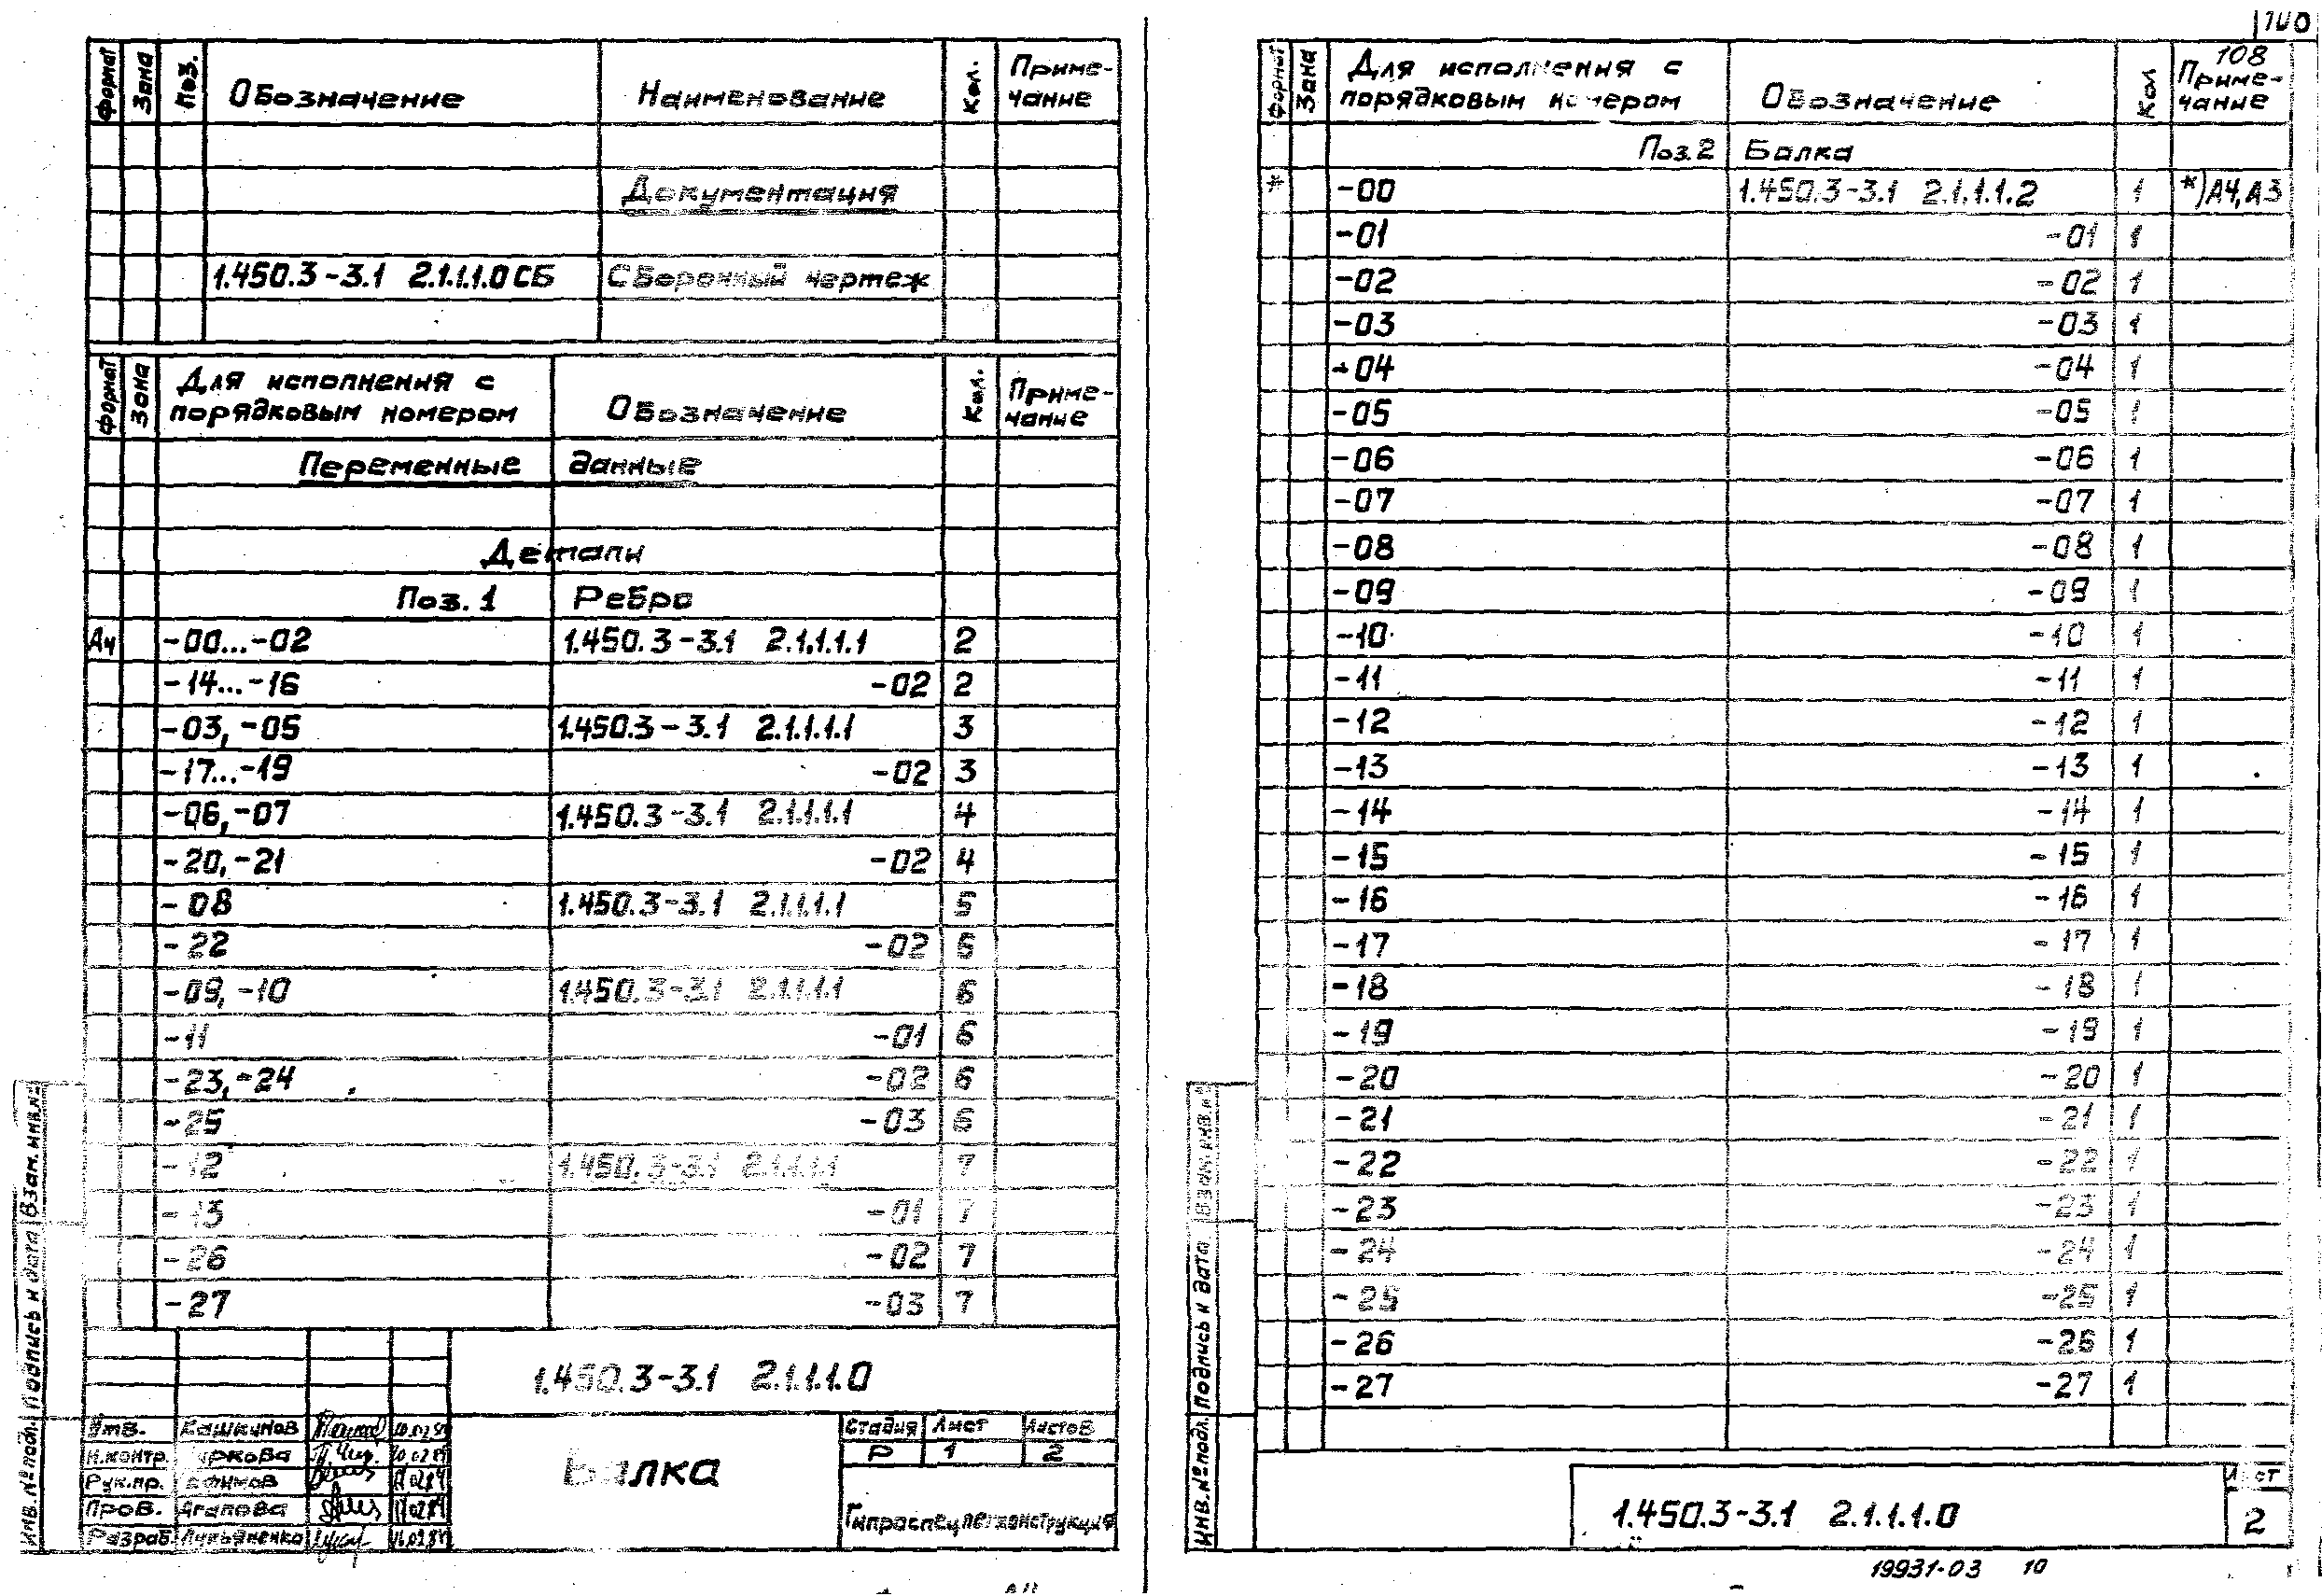 Формат Зона Поз. Обозначение Наименование Кол. Приме-
чание
Документация
1.450.3-3.1 2.1.1.1.0 СБ Сборочный чертеж
Формат Зона Для исполнения с
порядковым номером Обозначение Кол. Приме-
чание
Переменные данные
Детали
Поз. 1 Ребро
А4 -00...-02 1.450.3-3.1 2.1.1.1.1 2
-14...-16 -02 2
-03, -05 1.450.3-3.1 2.1.1.1.1 3
-17...-19 -02 3
-06, -07 1.450.3-3.1 2.1.1.1.1 4
-20, -21 -02 4
-08 1.450.3-3.1 2.1.1.1.1 5
-22 -02 5
-09, -10 1.450.3-3.1 2.1.1.1.1 6
-11 -01 6
-23, -24 -02 6
-25 -03 6
-12 1.450.3-3.1 2.1.1.1.1 7
-13 -01 7
-26 -02 7
-27 -03 7
1.450.3-3.1 2.1.1.1.0
Утв. Кашкинов
Н.контр.
Рук.пр.
Пров. Агапова
Разраб. Лукьяненко
Балка
Стадия Лист Листов
Р 1 2
Гипроспецлегконструкция
Инв.№ подл. Подпись и дата Взам.инв.№
140
108
Формат Зона Для исполнения с
порядковым номером Обозначение Кол Приме-
чание
Поз. 2 Балка
* -00 1.450.3-3.1 2.1.1.1.2 1 *)А4, А3
-01 -01 1
-02 -02 1
-03 -03 1
-04 -04 1
-05 -05 1
-06 -06 1
-07 -07 1
-08 -08 1
-09 -09 1
-10 -10 1
-11 -11 1
-12 -12 1
-13 -13 1
-14 -14 1
-15 -15 1
-16 -16 1
-17 -17 1
-18 -18 1
-19 -19 1
-20 -20 1
-21 -21 1
-22 -22 1
-23 -23 1
-24 -24 1
-25 -25 1
-26 -26 1
-27 -27 1
Инв.№ подл. Подпись и дата Взам.инв.№
1.450.3-3.1 2.1.1.1.0
Лист
2
19931-03 10